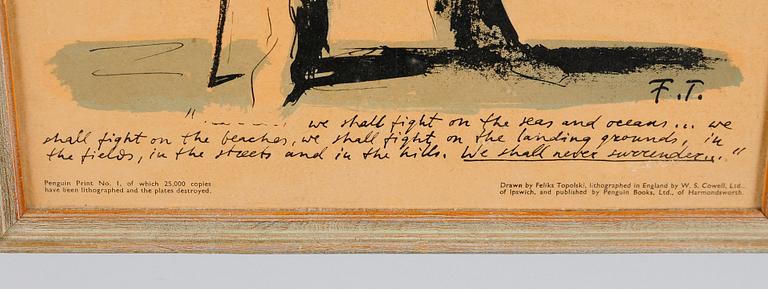 F. T.
"........ we shall fight on the seas and oceans... we
shall fight on the beaches, we shall fight on the landing grounds, in
the fields, in the streets and in the hills. We shall never surrender..."
Penguin Print No. 1, of which 25,000 copies
have been lithographed and the plates destroyed.
Drawn by Feliks Topolski, lithographed in England by W. S. Cowell, Ltd.,
of Ipswich, and published by Penguin Books, Ltd., of Harmondsworth.